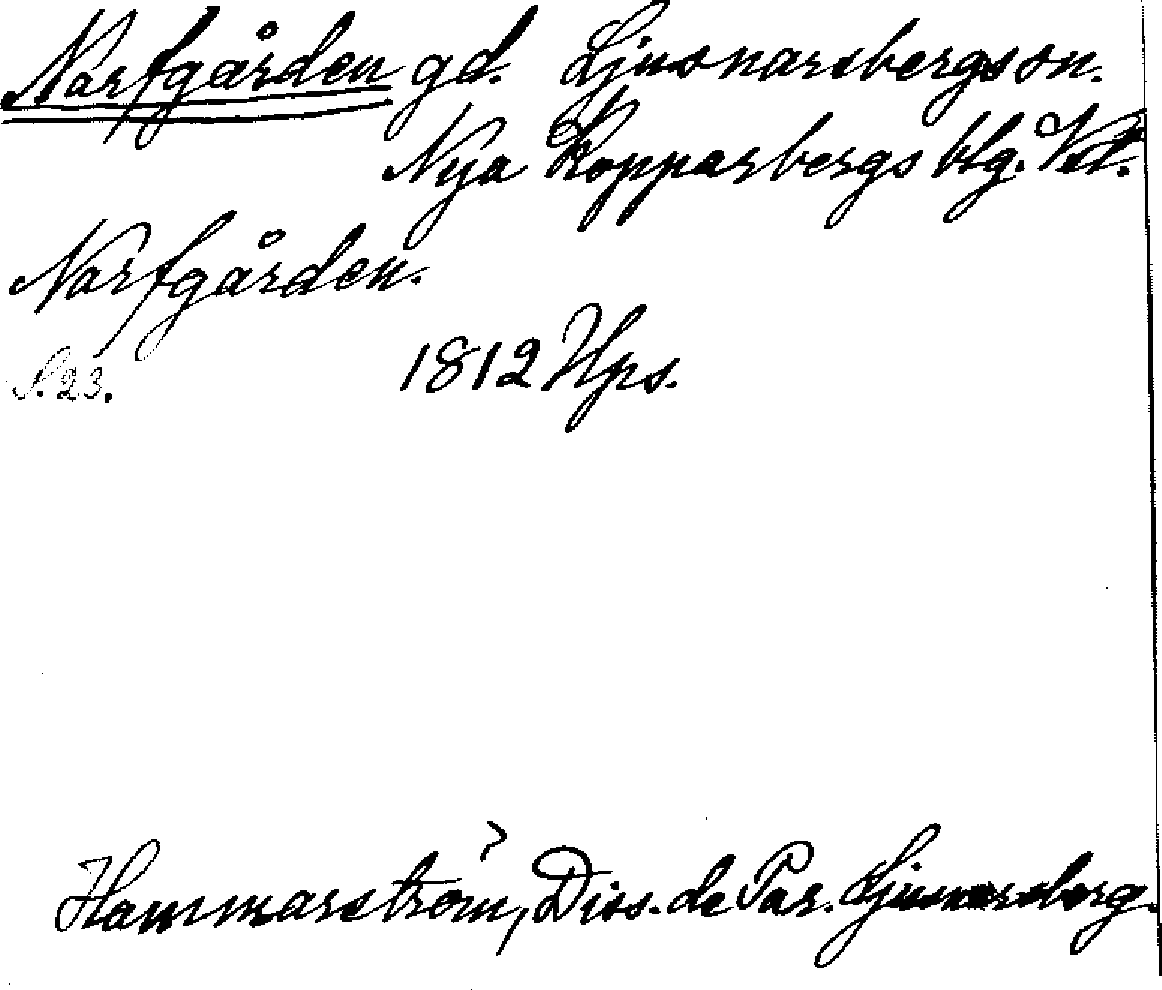 Narfgården gd. Ljusnarsbergs sn.
Nya Kopparbergs blg. Vstm.
Narfgården.
S. 23. 1812 Hps.
Hammarström, Diss. de Par. Ljusnarsberg.